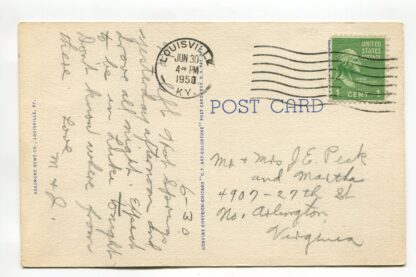 6-30
Left Hot Springs
yesterday afternoon and
drove all night. Expect
to be in Lake tonight
Don't know where from
there. Love
M & J.
READMORE NEWS CO., LOUISVILLE, KY.
LOUISVILLE
JUN 30
4 PM
1950
KY.
UNITED STATES
POSTAGE
1 CENT 1
POST CARD
GENUINE CURTEICH-CHICAGO "C.T. ART-COLORTONE" POST CARD
Mr & Mrs J. E. Peck
and Martha
4907-27th St
No. Arlington
Virginia